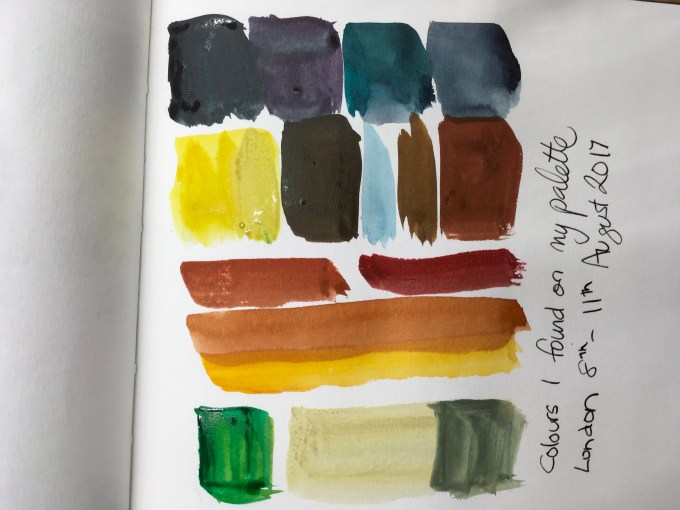 Colours I found on my palette
London 8th - 11th August 2017